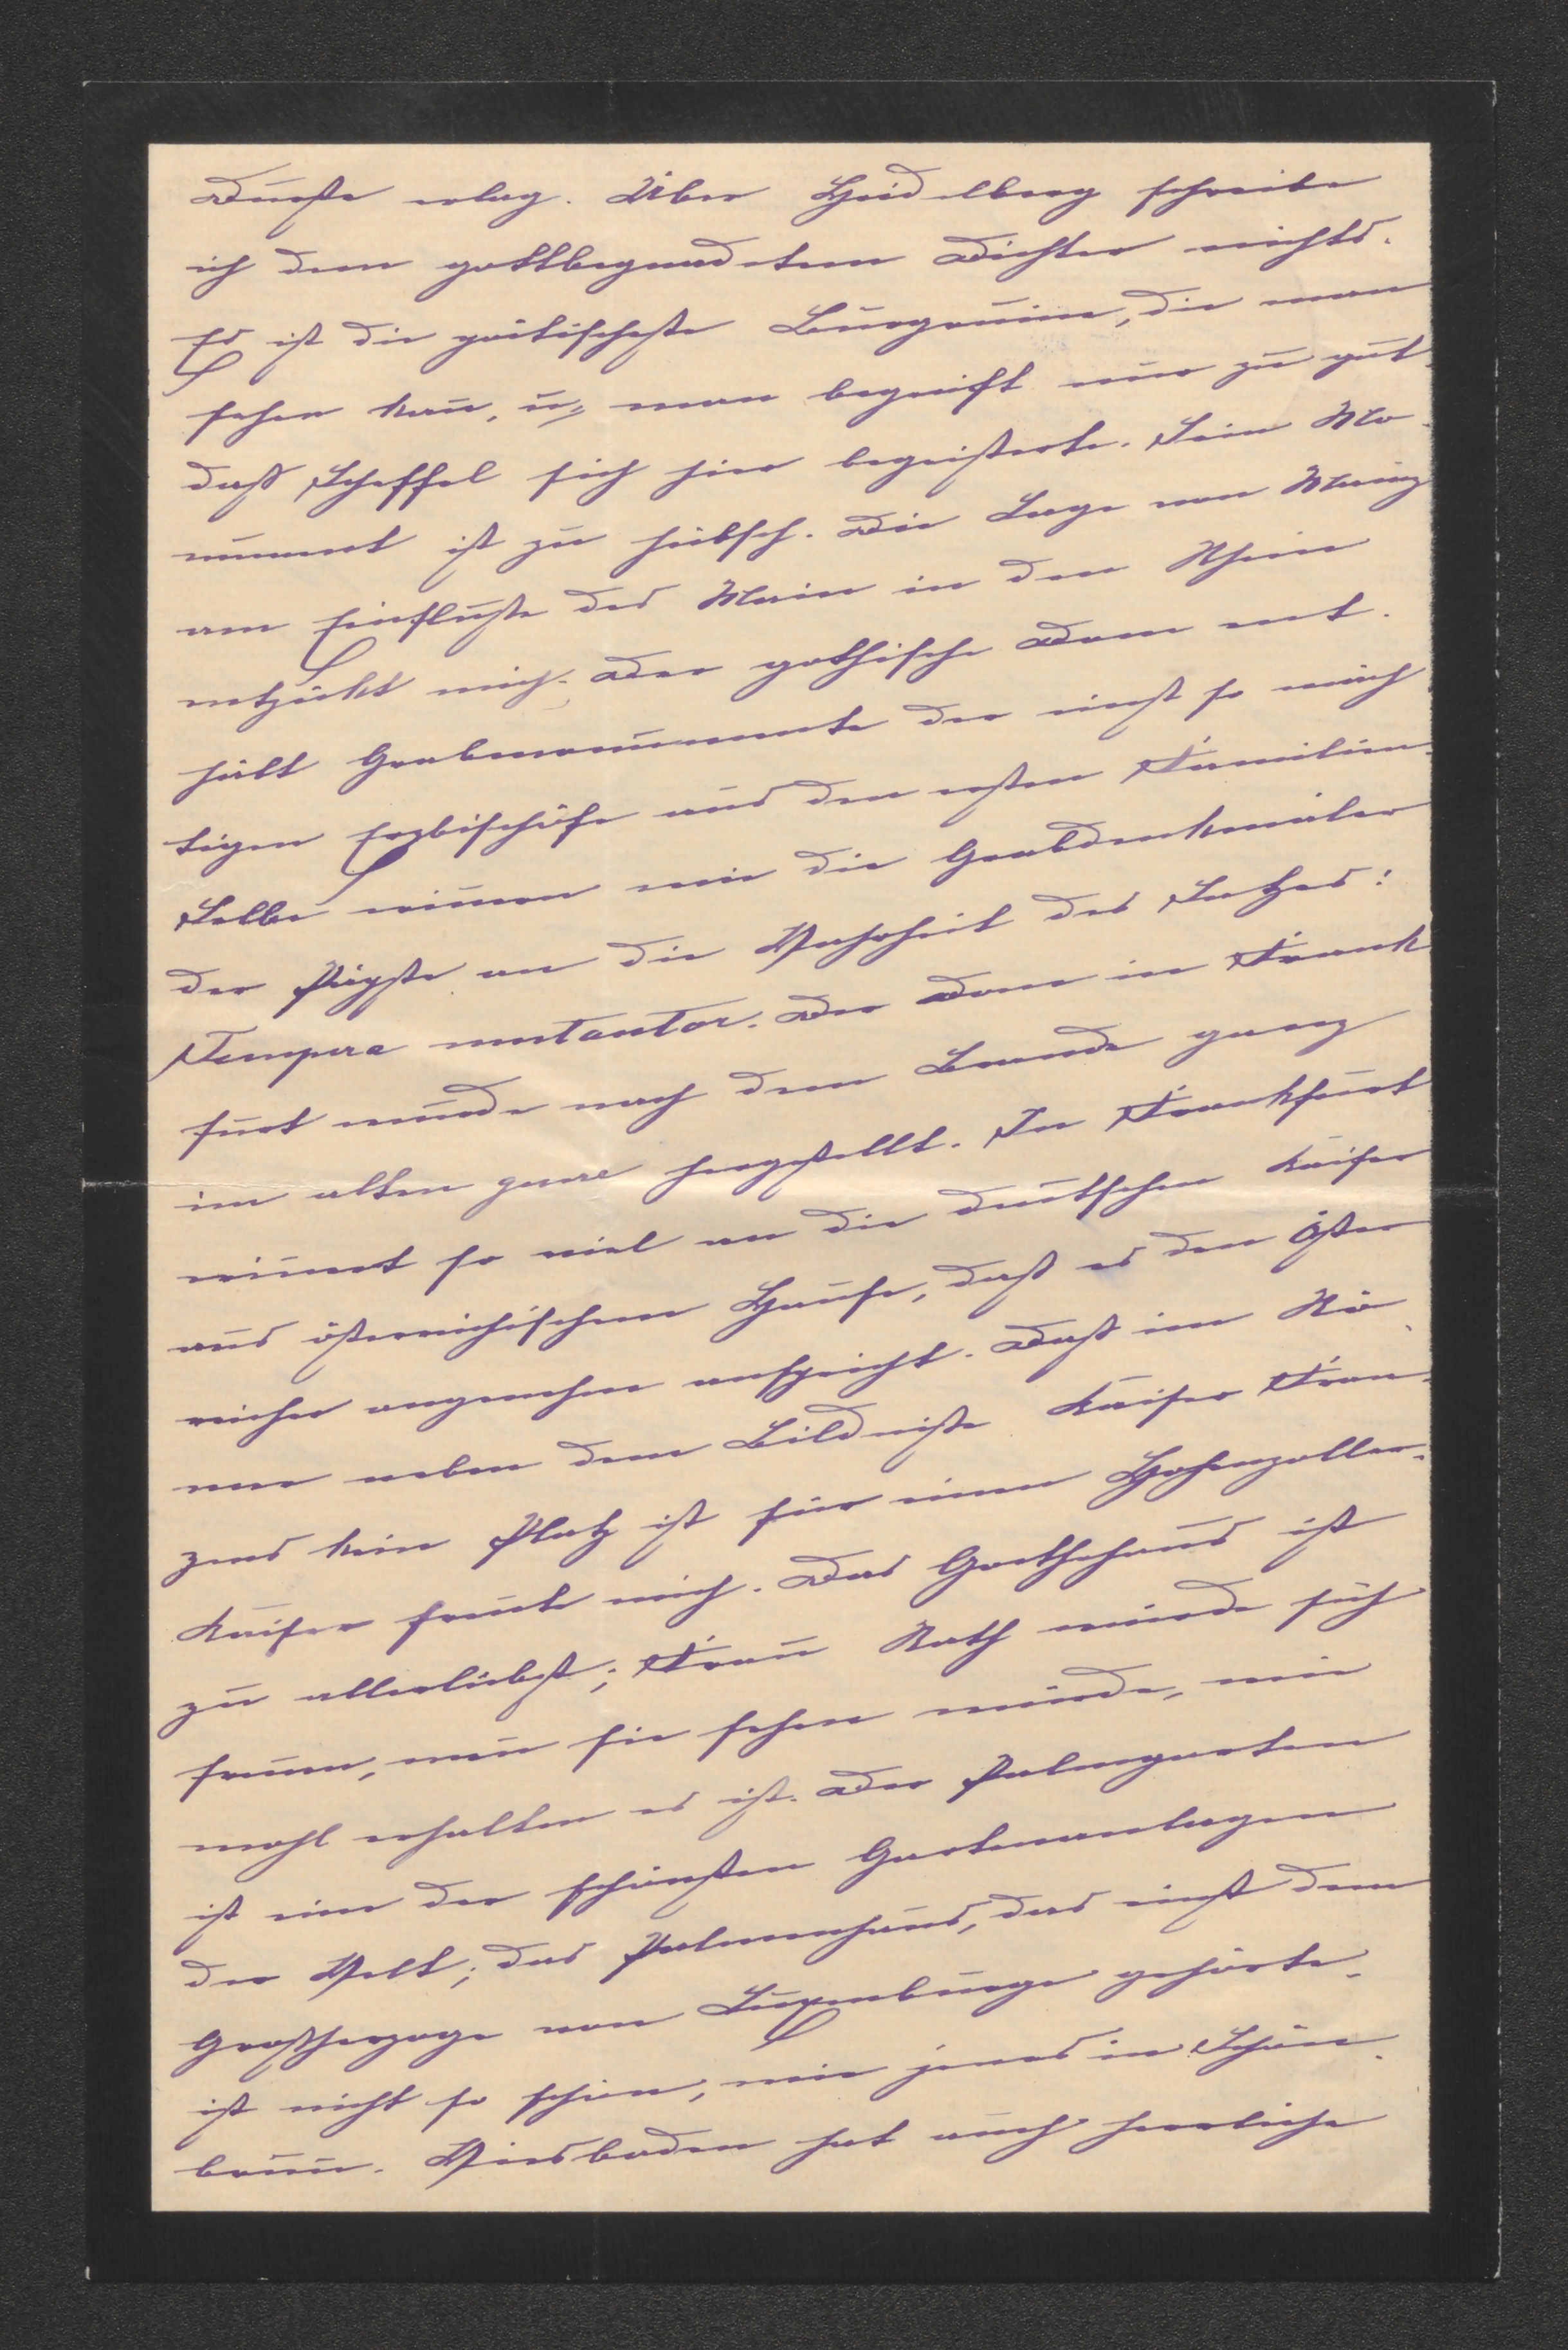 Durste erlag. Über Heidelberg schreibe
ich dem gottbegnadetem Dichter nichts.
Es ist die poetischeste Burgruine, die man
sehen kañ, u. man begreift nur zu gut
daß Scheffel sich hier begeisterte. Sein Mo-
nument ist zu hübsch. Die Lage von Mainz
am Einfluße des Main in den Rhein
entzückt mich. Der gothische Dom ent-
hält Grabmonumente der einst so mäch-
tigen Erzbischöfe aus den ersten Familien.
Selbe erinnern wie die Grabdenkmäler
der Päpste an die Wahrheit des Satzes:
Tempora mutantur. Der Dom in Frank-
furt wurde nach dem Brande ganz
im alten genre hergestellt. In Frankfurt
erinnert so viel an die deutschen Kaiser
aus österreichischem Hause, daß es den Öster-
reicher angenehm anspricht. Daß im Rö-
mer neben dem Bildniße Kaiser Fran-
zens kein Platz ist für einen Hohenzoller-
Kaiser freute mich. Das Goethehaus ist
zu allerliebst; Frau Rath würde sich
freuen, weñ sie sehen würde, wie
wohl erhalten es ist. Der Palmgarten
ist eine der schönsten Gartenanlagen
der Welt; das Palmenhaus, das einst dem
Großherzoge von Luxemburg gehörte,
ist nicht so schön, wie jenes in Schön-
brunn. Wiesbaden hat auch herrliche